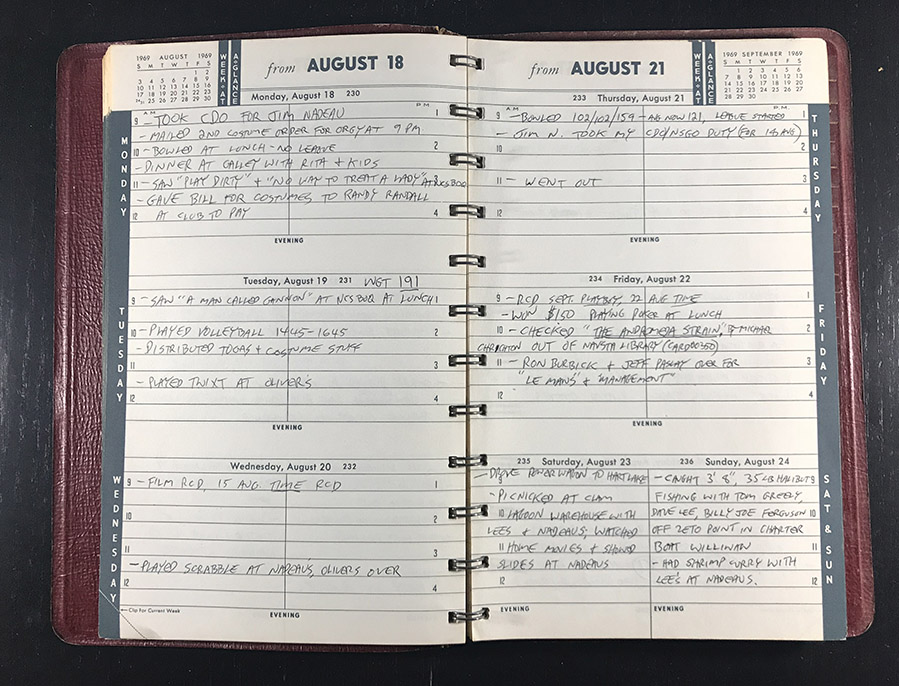 1969 AUGUST 1969
S M T W T F S
1 2
3 4 5 6 7 8 9
10 11 12 13 14 15 16
17 18 19 20 21 22 23
25 26 27 28 29 30
WEEK•AT
A•GLANCE
from AUGUST 18
Monday, August 18 230
MONDAY
A.M. P.M.
9 - TOOK CDO FOR JIM NADEAU 1
- MAILED 2ND COSTUME ORDER FOR ORGY AT 9 PM
10 - BOWLED AT LUNCH - NO LEAGUE 2
- DINNER AT GALLEY WITH RITA + KIDS
11 - SAW "PLAY DIRTY" + "NO WAY TO TREAT A LADY" AT NCS BOQ 3
- GAVE BILL FOR COSTUMES TO RANDY RANDALL
12 AT CLUB TO PAY 4
EVENING
Tuesday, August 19 231 WGT 191
TUESDAY
9 - SAW "A MAN CALLED GANNON" AT NCS BOQ AT LUNCH 1
10 - PLAYED VOLLEYBALL 1445-1645 2
- DISTRIBUTED TOGAS + COSTUME STUFF
11 3
- PLAYED TWIXT AT OLIVER'S
12 4
EVENING
Wednesday, August 20 232
WEDNESDAY
9 - FILM RCD, 15 AUG. TIME RCD 1
10 2
11 3
- PLAYED SCRABBLE AT NADEAUS, OLIVERS OVER
12 4
←Clip For Current Week
EVENING
from AUGUST 21
WEEK•AT
A•GLANCE
1969 SEPTEMBER 1969
S M T W T F S
1 2 3 4 5 6
7 8 9 10 11 12 13
14 15 16 17 18 19 20
21 22 23 24 25 26 27
28 29 30
233 Thursday, August 21
THURSDAY
A.M. P.M.
9 - BOWLED 102/102/159 - AVG NOW 121, LEAGUE STARTED 1
- JIM N. TOOK MY CDO/NSGO DUTY (FOR 14 AUG)
10 2
11 - WENT OUT 3
12 4
EVENING
234 Friday, August 22
FRIDAY
9 - RCD SEPT. PLAYBOY, 22 AUG TIME 1
- WON $1.50 PLAYING POKER AT LUNCH
10 - CHECKED "THE ANDROMEDA STRAIN", BY MICHAR 2
CHRICHTON OUT OF NAVSTA LIBRARY (CARD 00350)
11 - RON BURRICK + JEFF OVER FOR 3
"LE MANS" + "MANAGEMENT"
12 4
EVENING
235 Saturday, August 23
- DROVE POWER WAGON TO HART LAKE
9
- PICNICKED AT CLAM
10 LAGOON WAREHOUSE WITH
LEES + NADEAUS, WATCHED
11 HOME MOVIES + SHOWED
SLIDES AT NADEAUS
12
EVENING
236 Sunday, August 24
SAT & SUN
- CAUGHT 3' 8", 35 LB HALIBUT 9
FISHING WITH TOM GREELY,
DAVE LEE, BILLY JOE FERGUSON 10
OFF ZETO POINT IN CHARTER
BOAT WILLIWAW 11
- HAD SHRIMP CURRY WITH
LEE'S AT NADEAUS. 12
EVENING